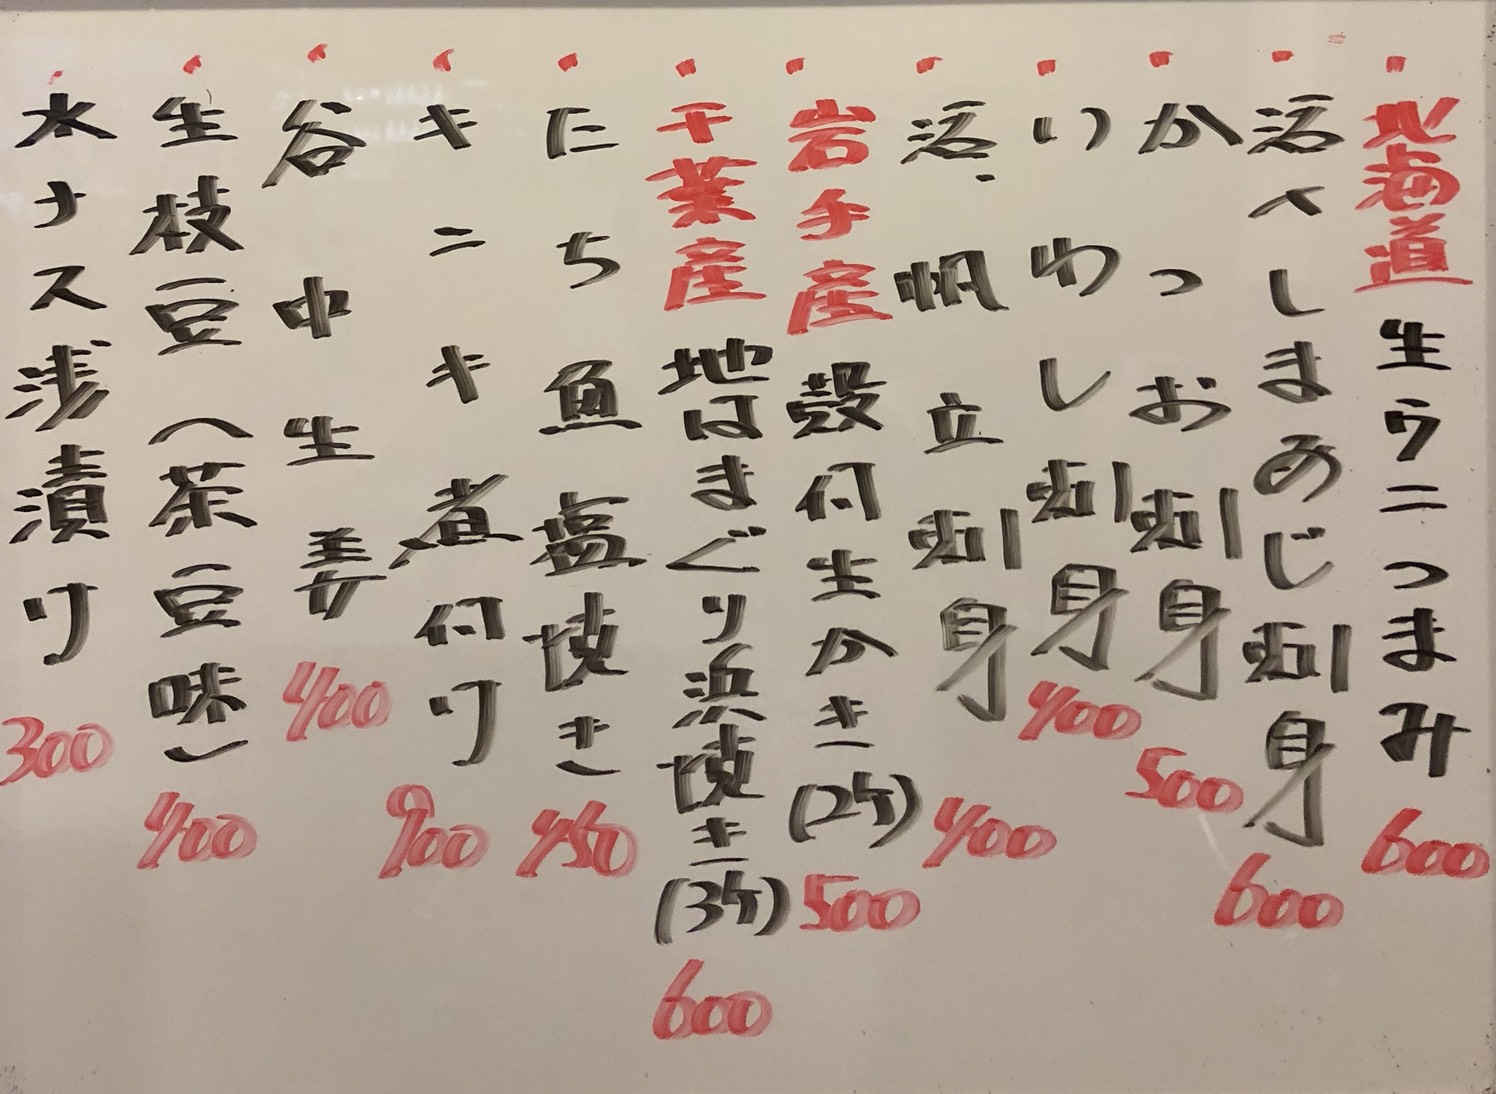 北海道生ウニつまみ 600
活〆しまあじ刺身 600
かつお刺身 500
いわし刺身 400
活帆立刺身 400
岩手産殻付生かき(2ケ) 500
千葉産地はまぐり浜焼き(3ケ) 600
たち魚塩焼き 450
キンキ煮付け 900
谷中生姜 400
生枝豆(茶豆味) 400
水ナス浅漬け 300